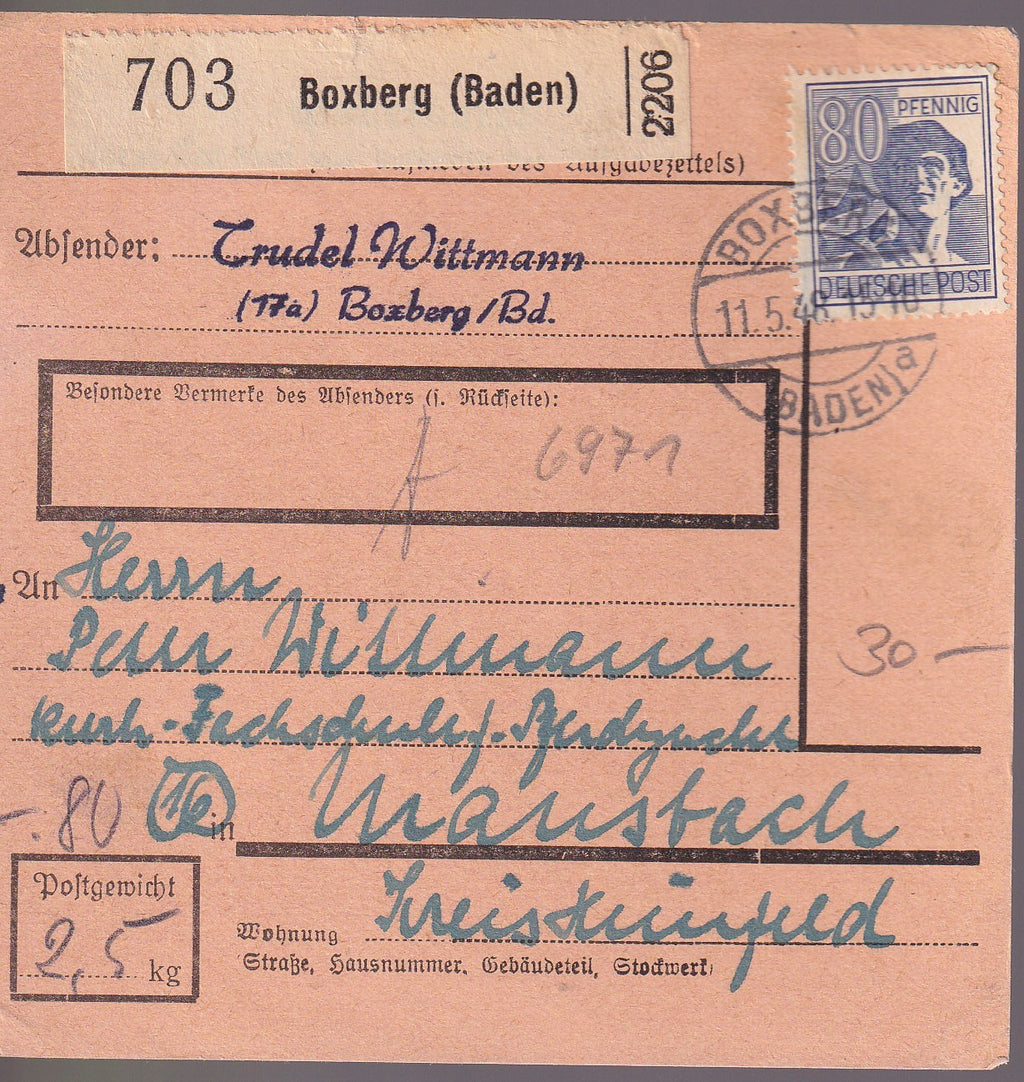 703 Boxberg (Baden) 2206
des Aufgabezettels)
80 PFENNIG
DEUTSCHE POST
BOXBERG
11.5.48.
(BADEN) a
Absender: Trudel Wittmann
(17a) Boxberg/Bd.
Besondere Vermerke des Absenders (s. Rückseite):
6971
An Herrn
Peter Wittmann
30 —
-.80 (16) in Mansbach
Postgewicht
2,5 kg
Wohnung Kreis Hünfeld
Straße, Hausnummer, Gebäudeteil, Stockwerk